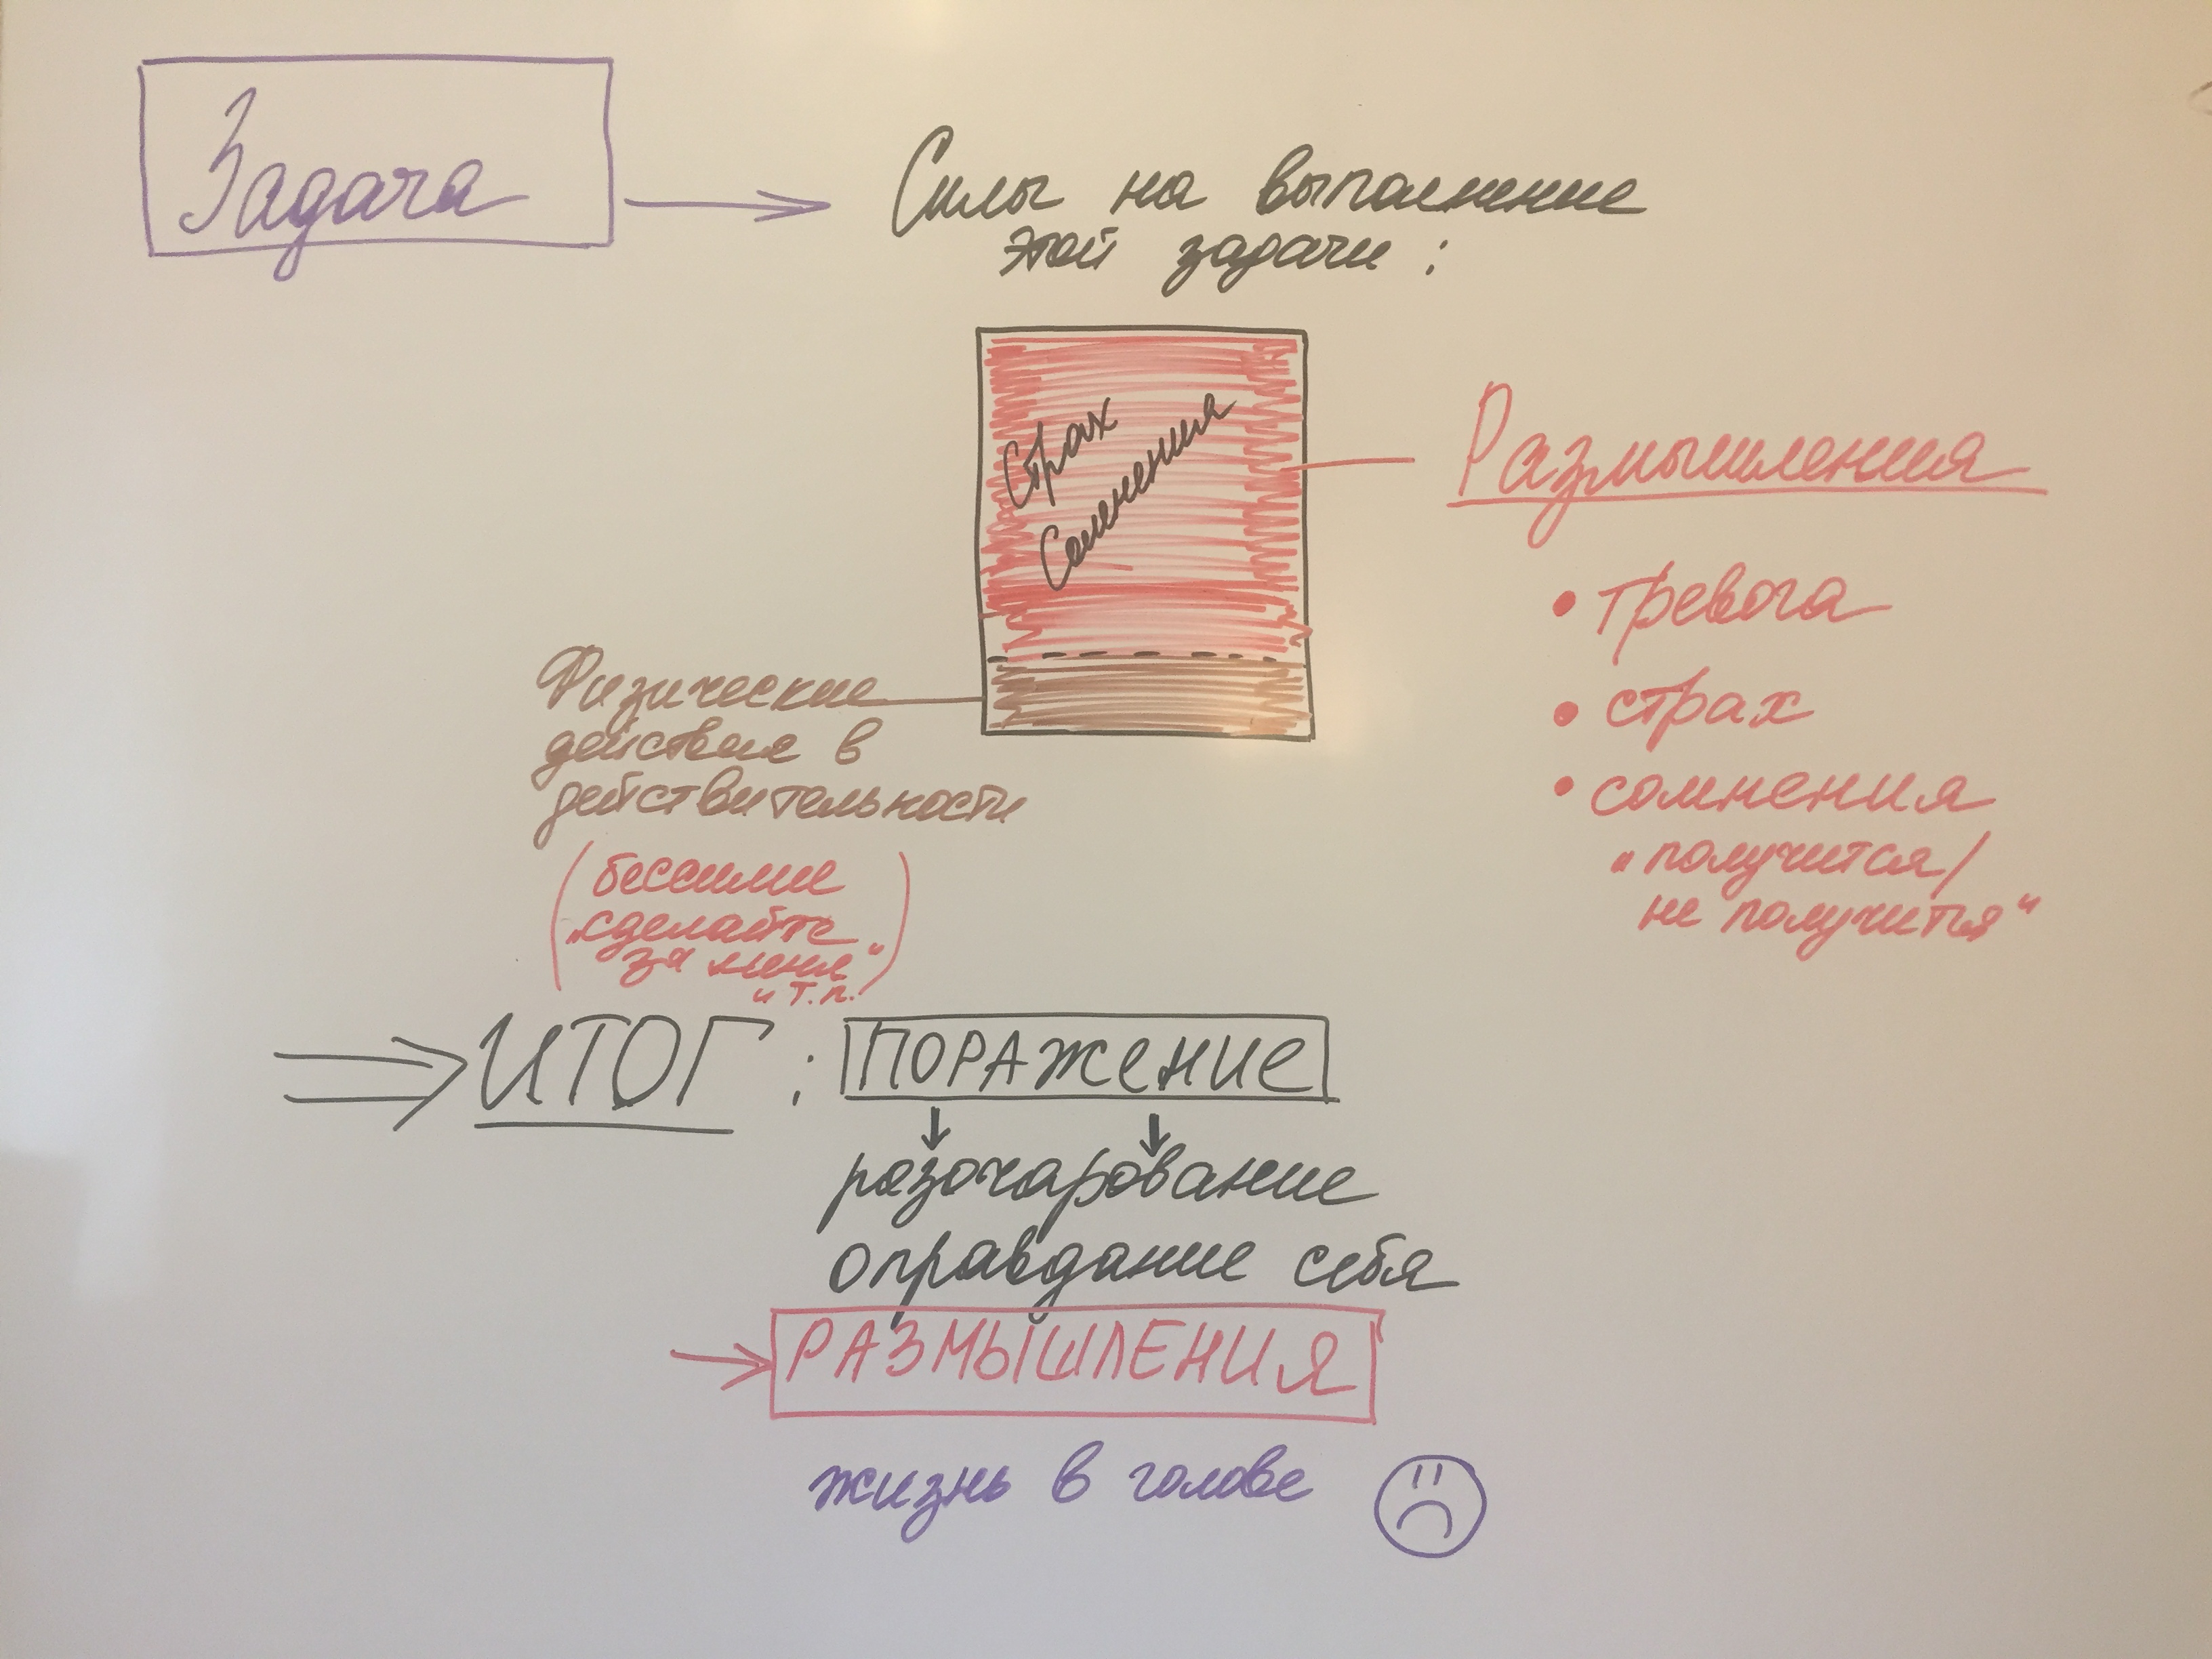 Задача
Силы на выполнение
этой задачи :
Страх
Сомнения
Размышления
• тревога
• страх
• сомнения
„получится/
не получится“
Физические
действия в
действительности
(бессилие
„сделайте
за меня“
и т.п.)
ИТОГ : ПОРАЖЕНИЕ
разочарование
оправдание себя
РАЗМЫШЛЕНИЯ
жизнь в голове